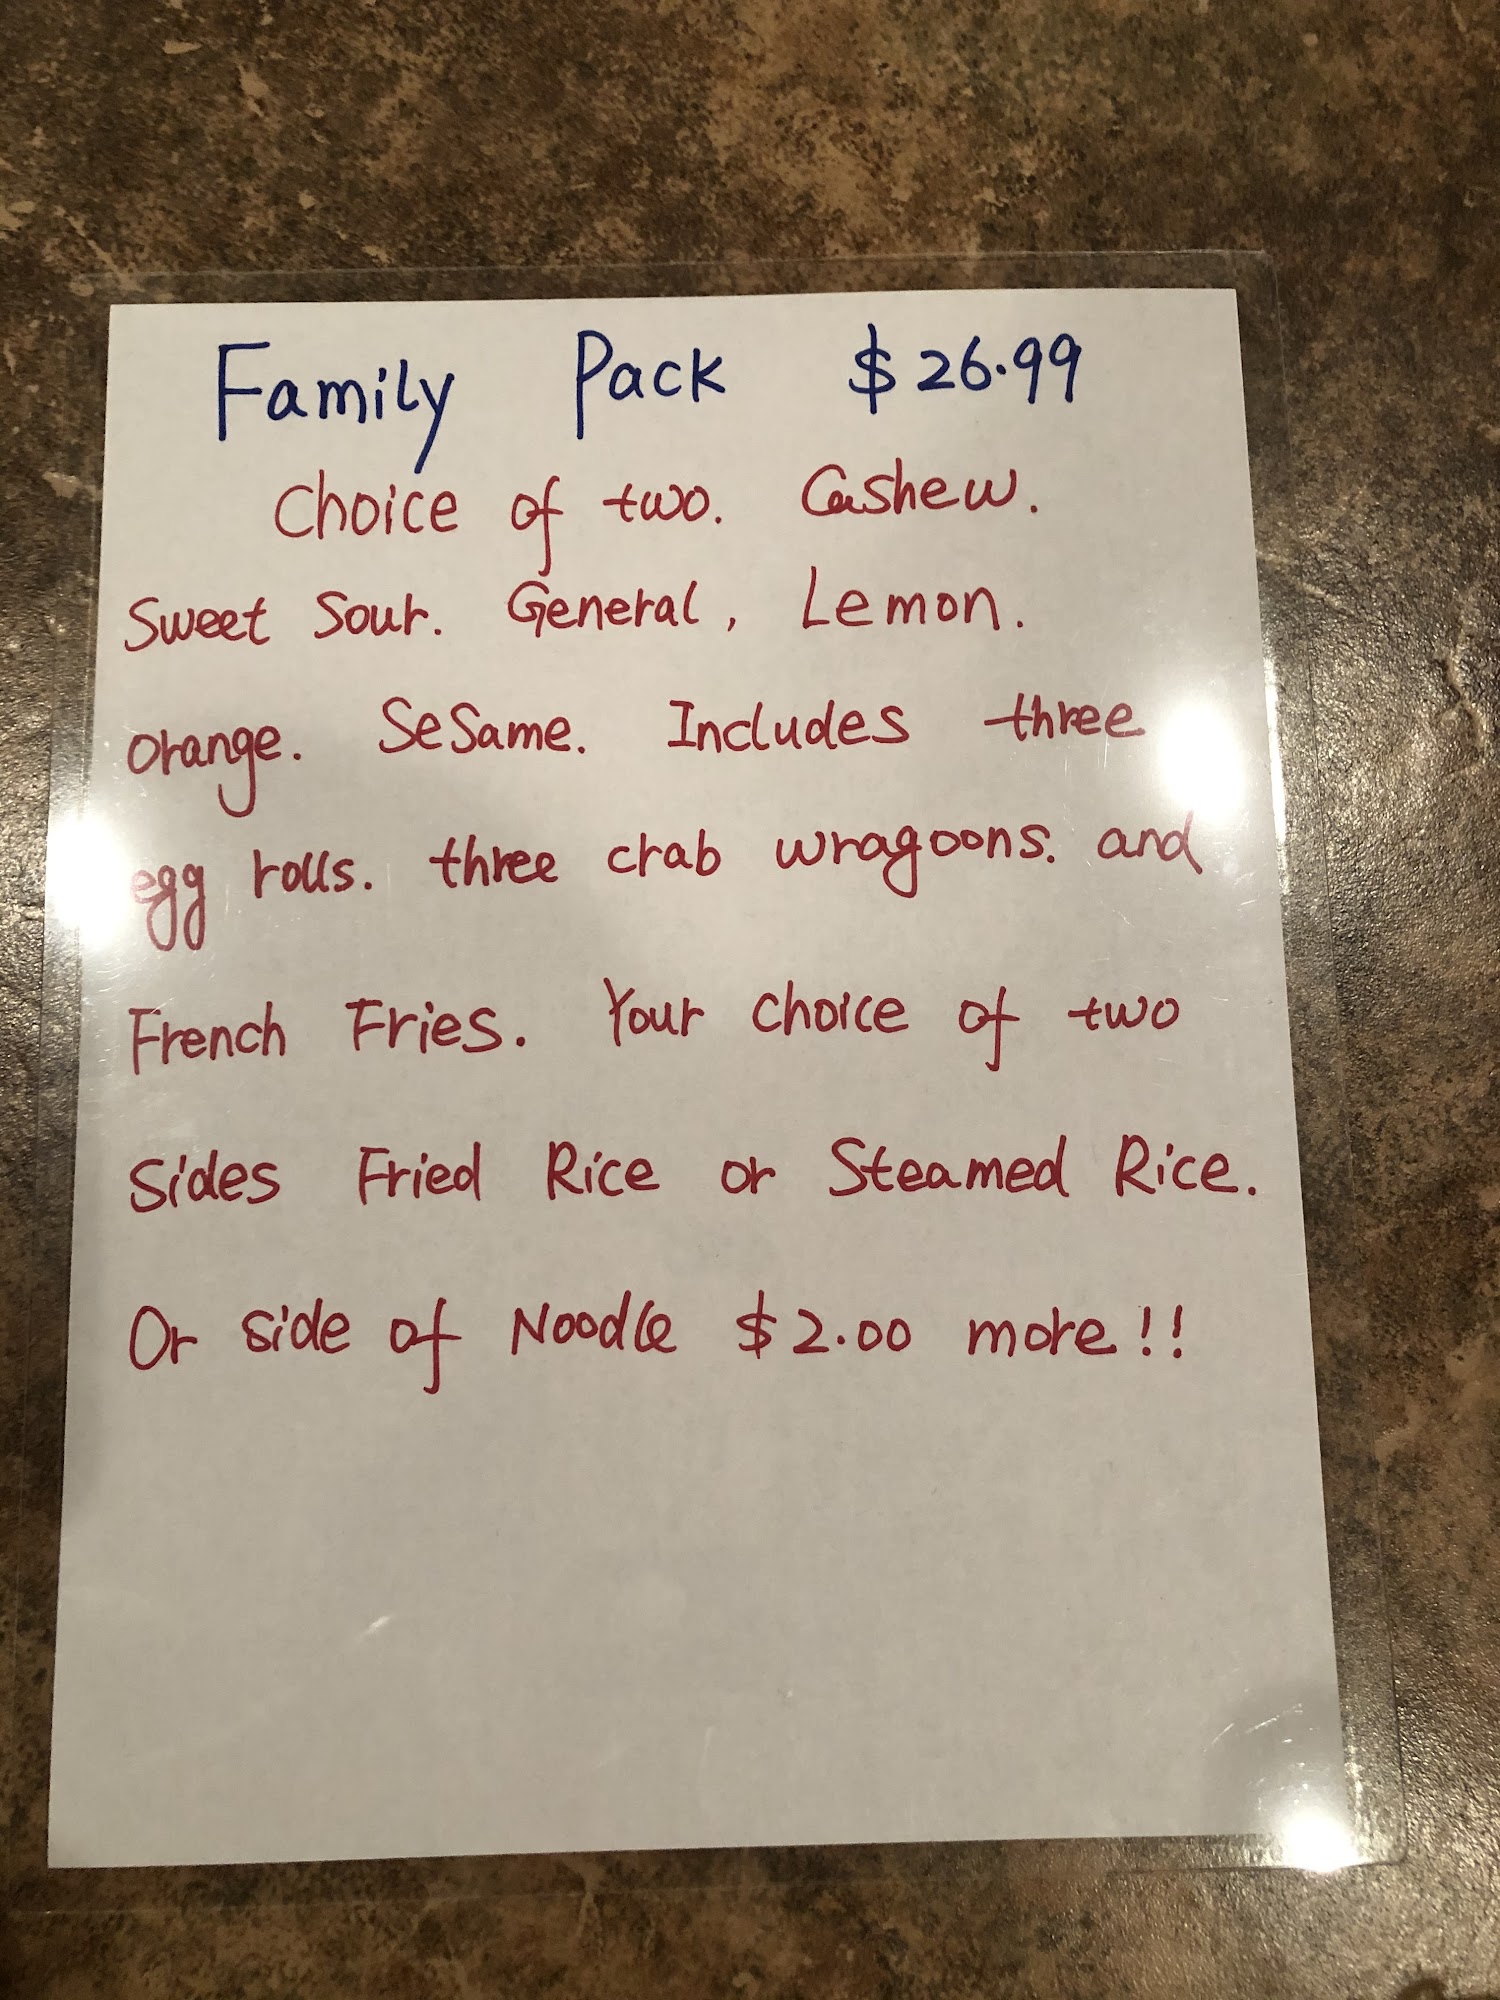 Family Pack $26.99
Choice of two. Cashew.
Sweet Sour. General, Lemon.
Orange. SeSame. Includes three
egg rolls. three crab wragoons. and
French Fries. Your choice of two
Sides Fried Rice or Steamed Rice.
Or side of Noodle $2.00 more!!